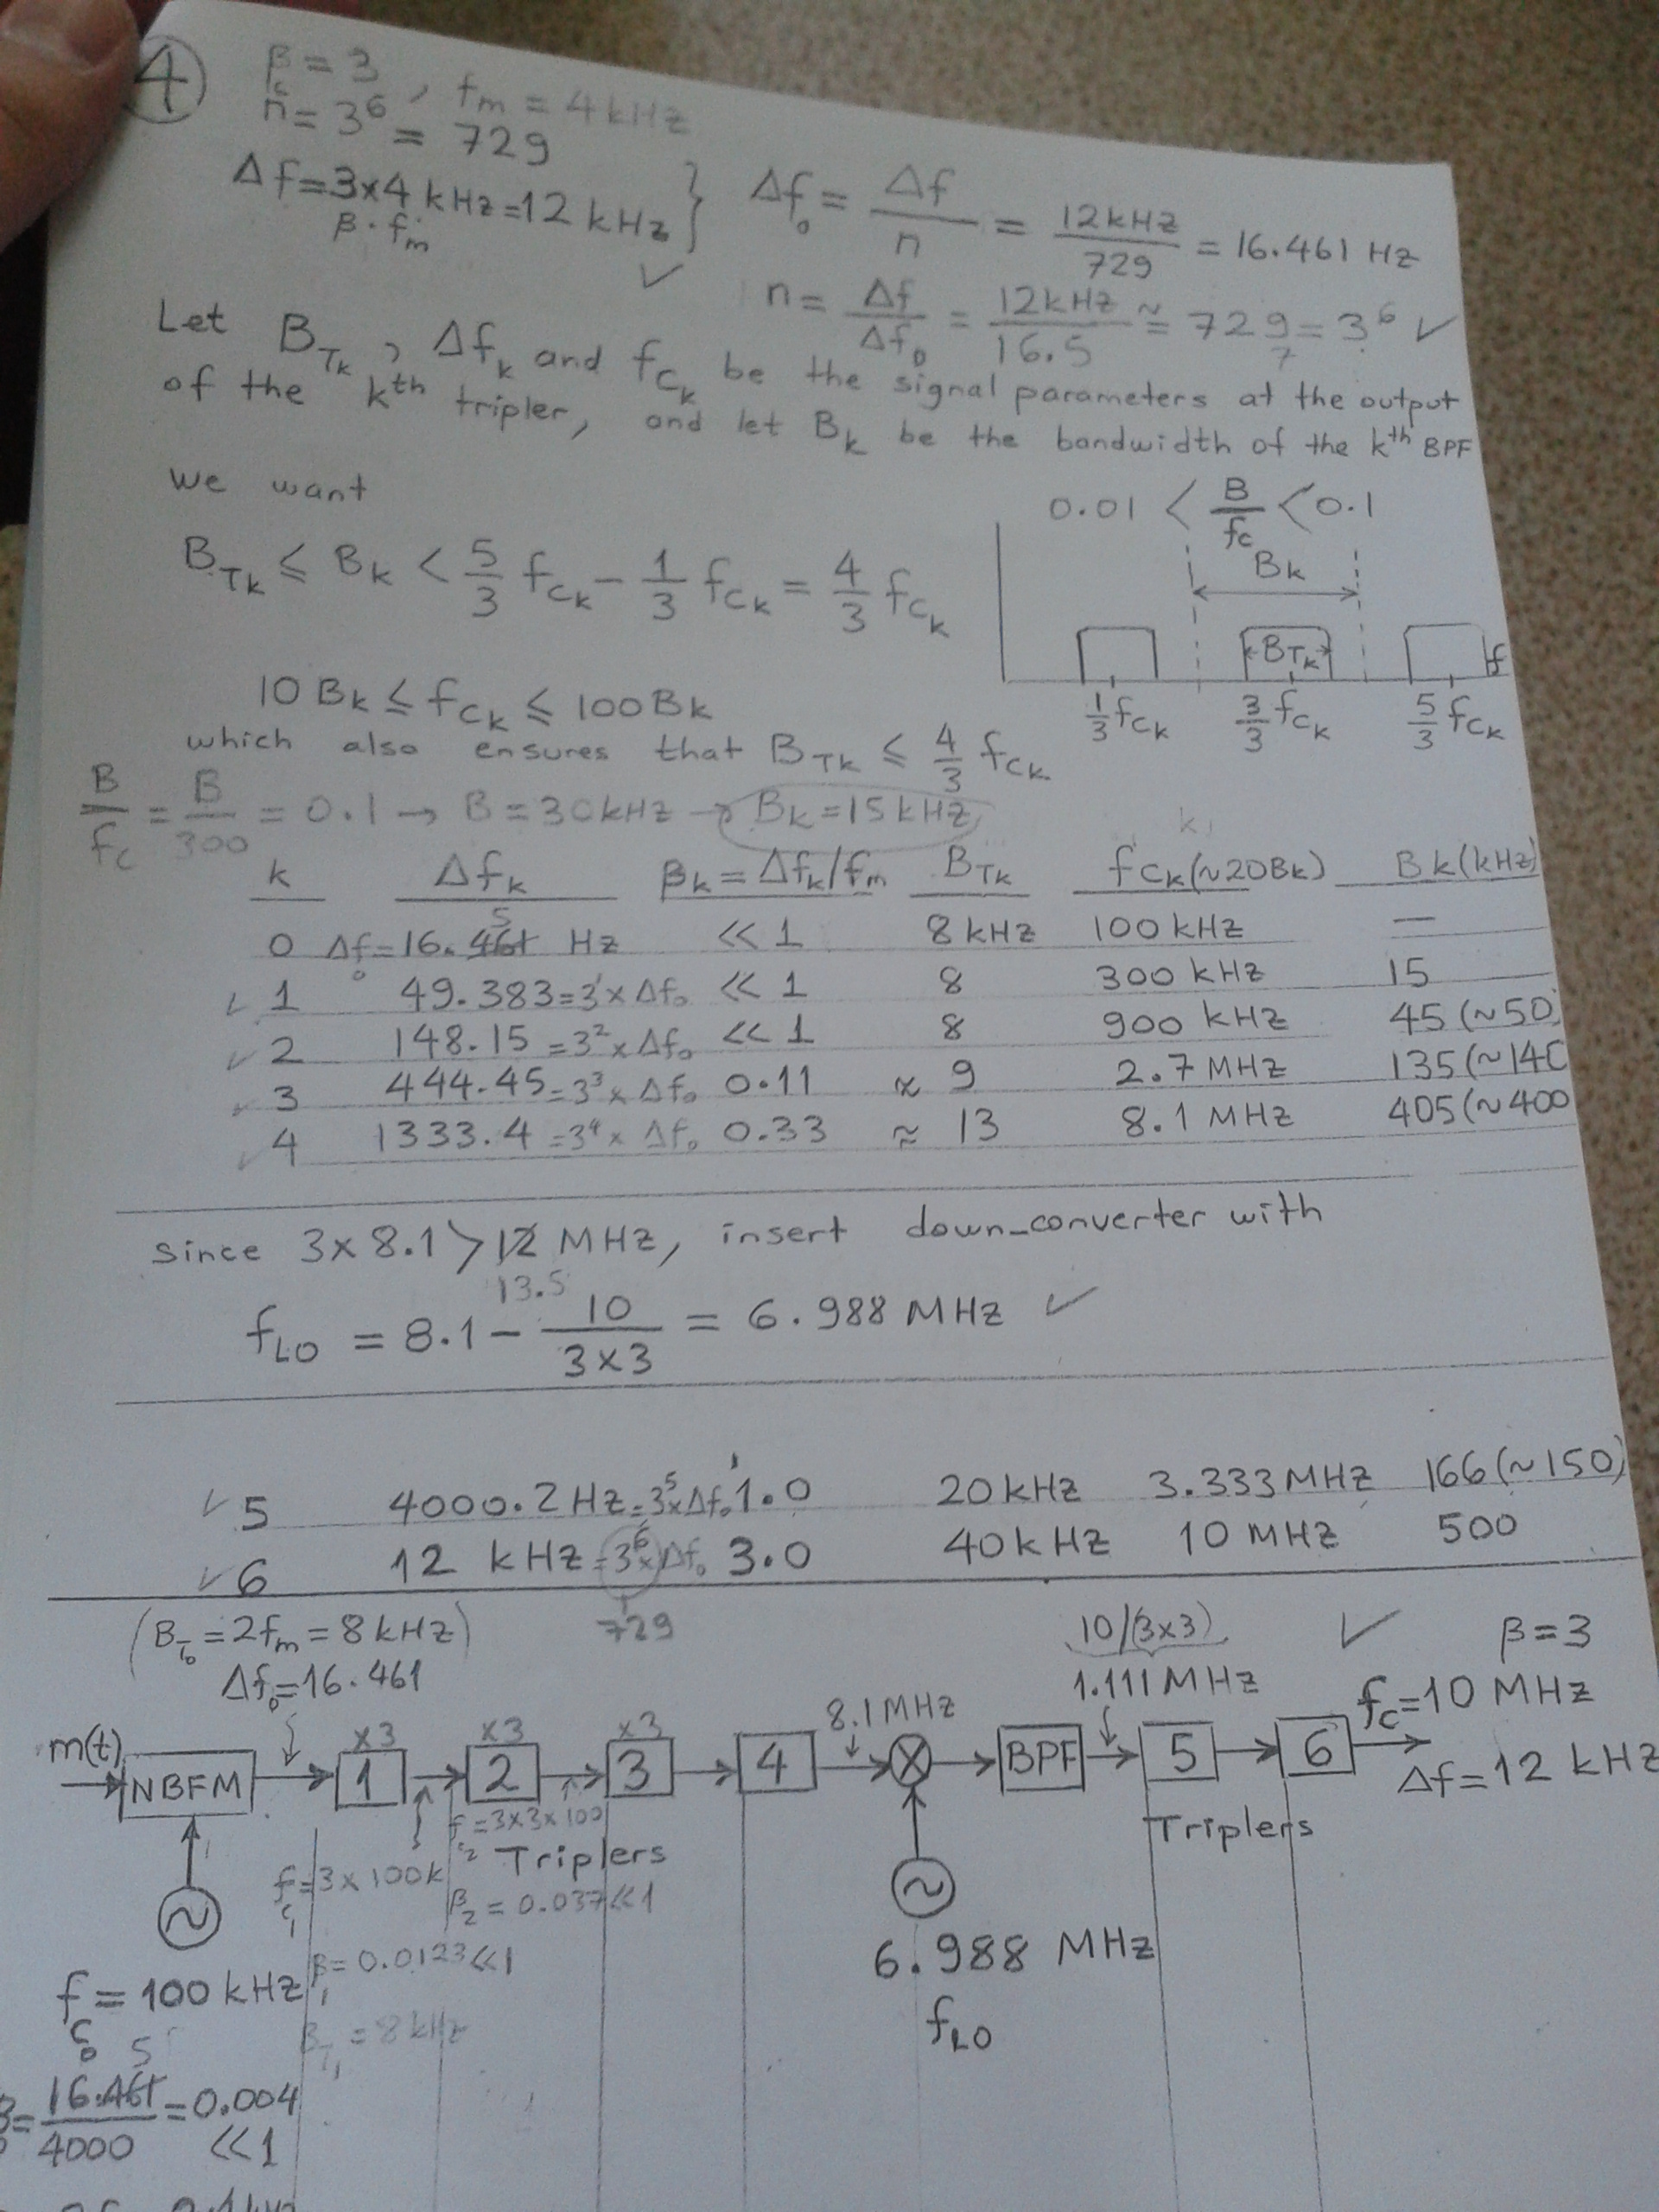 4
β = 3 , fm = 4 kHz
n = 3^6 = 729
Δf = 3x4 kHz = 12 kHz } Δf₀ = Δf/n = 12kHz/729 = 16.461 Hz
β . fm
n = Δf/Δf₀ = 12kHz/16.5 ≈ 729 = 3^6 ✓
7
Let B_Tk , Δf_k and f_Ck be the signal parameters at the output
of the k^th tripler, and let B_k be the bandwidth of the k^th BPF
we want
0.01 < B/fc < 0.1
B_Tk ≤ B_k < 5/3 f_Ck - 1/3 f_Ck = 4/3 f_Ck
B_k
B_Tk
f
1/3 f_Ck 3/3 f_Ck 5/3 f_Ck
10 B_k ≤ f_Ck ≤ 100 B_k
which also ensures that B_Tk ≤ 4/3 f_Ck
B/fc = B/300 = 0.1 → B = 30 kHz → B_k = 15 kHz
k Δf_k β_k = Δf_k/fm B_Tk f_Ck (~20B_k) B_k (kHz)
0 Δf₀ = 16.461 Hz << 1 8 kHz 100 kHz —
5
✓ 1 49.383 = 3^1 x Δf₀ << 1 8 300 kHz 15
✓ 2 148.15 = 3^2 x Δf₀ << 1 8 900 kHz 45 (~50)
✓ 3 444.45 = 3^3 x Δf₀ 0.11 ≈ 9 2.7 MHz 135 (~140
✓ 4 1333.4 = 3^4 x Δf₀ 0.33 ≈ 13 8.1 MHz 405 (~400
since 3 x 8.1 > 12 MHz, insert down-converter with
13.5
f_LO = 8.1 - 10/(3x3) = 6.988 MHz ✓
✓ 5 4000.2 Hz = 3^5 x Δf₀ 1.0 20 kHz 3.333 MHz 166 (~150)
✓ 6 12 kHz = 3^6 x Δf₀ 3.0 40 kHz 10 MHz 500
729
(B_T₀ = 2fm = 8 kHz)
Δf₀ = 16.461
10/(3x3)
1.111 MHz
✓
β = 3
fc = 10 MHz
Δf = 12 kHz
8.1 MHz
m(t) NBFM x3 1 x3 2 x3 3 4 X BPF 5 6
Triplers
Triplers
f_C1 = 3 x 100k
f_C2 = 3x3x100
β₂ = 0.037 << 1
β₁ = 0.0123 << 1
B_T1 = 8 kHz
f_C₀ = 100 kHz
6.988 MHz
f_LO
5
= 16.461/4000 = 0.004
<< 1